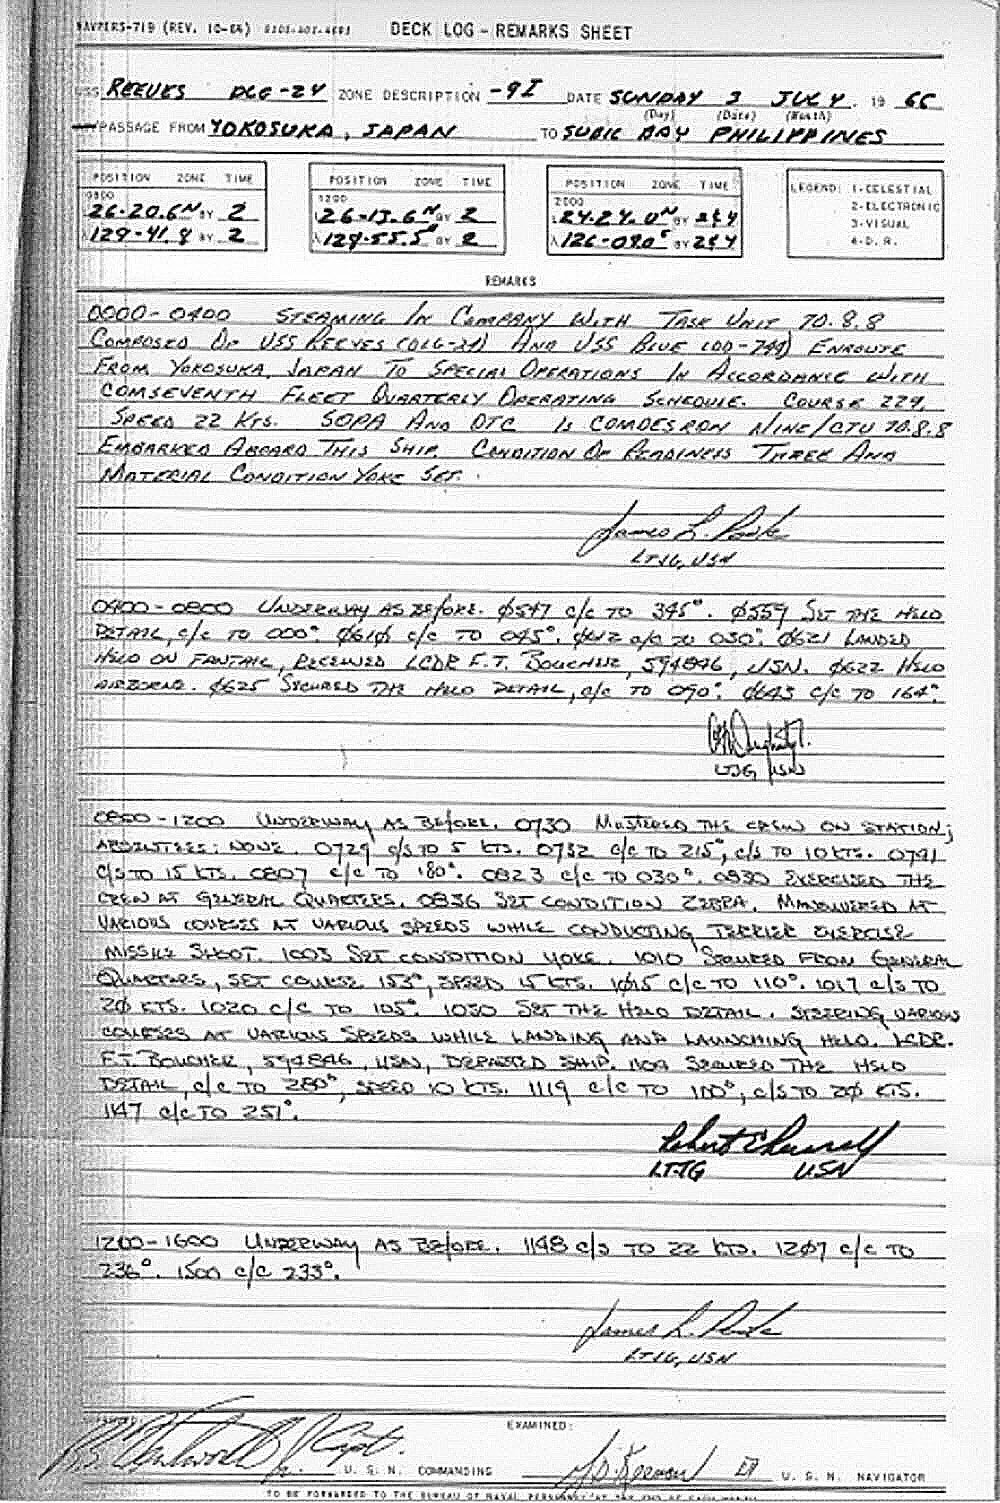 NAVPERS-719 (REV. 10-64) DECK LOG - REMARKS SHEET
USS REEVES DLG-24 ZONE DESCRIPTION -9I DATE SUNDAY 3 JULY 19 66
(Day) (Date) (Month)
PASSAGE FROM YOKOSUKA, JAPAN TO SUBIC BAY PHILIPPINES
POSITION ZONE TIME POSITION ZONE TIME POSITION ZONE TIME LEGEND: 1-CELESTIAL
0800 1200 2000 2-ELECTRONIC
26-20.6N BY 2 L 26-13.6N BY 2 L 24-24.0N BY 2&4 3-VISUAL
λ 129-41.8 BY 2 λ 129-55.5E BY 2 λ 126-09.0E BY 2&4 4-D.R.
REMARKS
0000-0400 STEAMING IN COMPANY WITH TASK UNIT 70.8.8
COMPOSED OF USS REEVES (DLG-24) AND USS BLUE (DD-744) ENROUTE
FROM YOKOSUKA, JAPAN TO SPECIAL OPERATIONS IN ACCORDANCE WITH
COMSEVENTH FLEET QUARTERLY OPERATING SCHEDULE. COURSE 229,
SPEED 22 KTS. SOPA AND OTC IS COMDESRON NINE/CTU 70.8.8
EMBARKED ABOARD THIS SHIP. CONDITION OF READINESS THREE AND
MATERIAL CONDITION YOKE SET.
James L.
LTJG, USN
0400-0800 UNDERWAY AS BEFORE. 0547 c/c TO 345°. 0559 SET THE HELO
DETAIL, c/c TO 000°. 0610 c/c TO 045°. 0612 c/c TO 030°. 0621 LANDED
HELO ON FANTAIL, RECEIVED LCDR F.T. BOUCHER, 594846, USN. 0622 HELO
AIRBORNE. 0625 SECURED THE HELO DETAIL, c/c TO 090°. 0643 c/c TO 164°.
LTJG USN
0800-1200 UNDERWAY AS BEFORE. 0730 MUSTERED THE CREW ON STATION;
ABSENTEES: NONE. 0729 c/s TO 5 KTS. 0732 c/c TO 215°, c/s TO 10 KTS. 0741
c/s TO 15 KTS. 0807 c/c TO 180°. 0823 c/c TO 030°. 0830 EXERCISED THE
CREW AT GENERAL QUARTERS. 0836 SET CONDITION ZEBRA. MANEUVERED AT
VARIOUS COURSES AT VARIOUS SPEEDS WHILE CONDUCTING TERRIER EXERCISE
MISSILE SHOOT. 1003 SET CONDITION YOKE. 1010 SECURED FROM GENERAL
QUARTERS, SET COURSE 153°, SPEED 15 KTS. 1015 c/c TO 110°. 1017 c/s TO
20 KTS. 1020 c/c TO 105°. 1030 SET THE HELO DETAIL. STEERING VARIOUS
COURSES AT VARIOUS SPEEDS WHILE LANDING AND LAUNCHING HELO. LCDR.
F.T. BOUCHER, 594846, USN, DEPARTED SHIP. 1109 SECURED THE HELO
DETAIL, c/c TO 280°, SPEED 10 KTS. 1119 c/c TO 100°, c/s TO 20 KTS.
1147 c/c TO 251°.
Robert
LTJG USN
1200-1600 UNDERWAY AS BEFORE. 1148 c/s TO 22 KTS. 1207 c/c TO
236°. 1500 c/c 233°.
James L.
LTJG, USN
EXAMINED:
Jr. Capt. U. S. N. COMMANDING U. S. N. NAVIGATOR
TO BE FORWARDED TO THE BUREAU OF NAVAL PERSONNEL AT THE END OF EACH MONTH